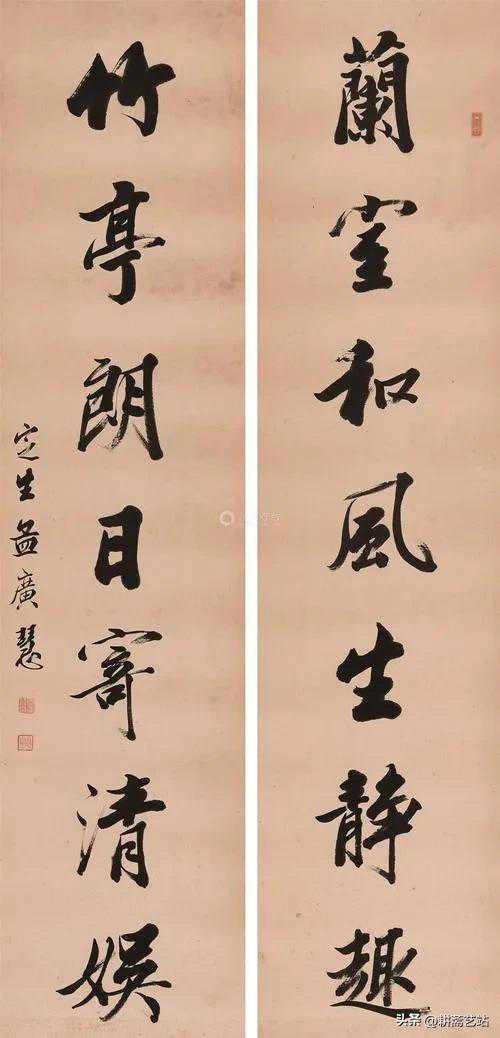 蘭室和風生静趣
竹亭朗日寄清娱
定生孟廣慧
头条 @耕斋艺站